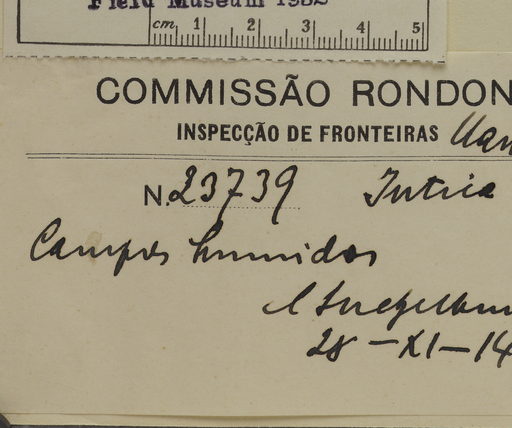 Field Museum 1982
cm 1 2 3 4 5
COMMISSÃO RONDON
INSPECÇÃO DE FRONTEIRAS
N. 23739
Campos humidos
28-XI-14